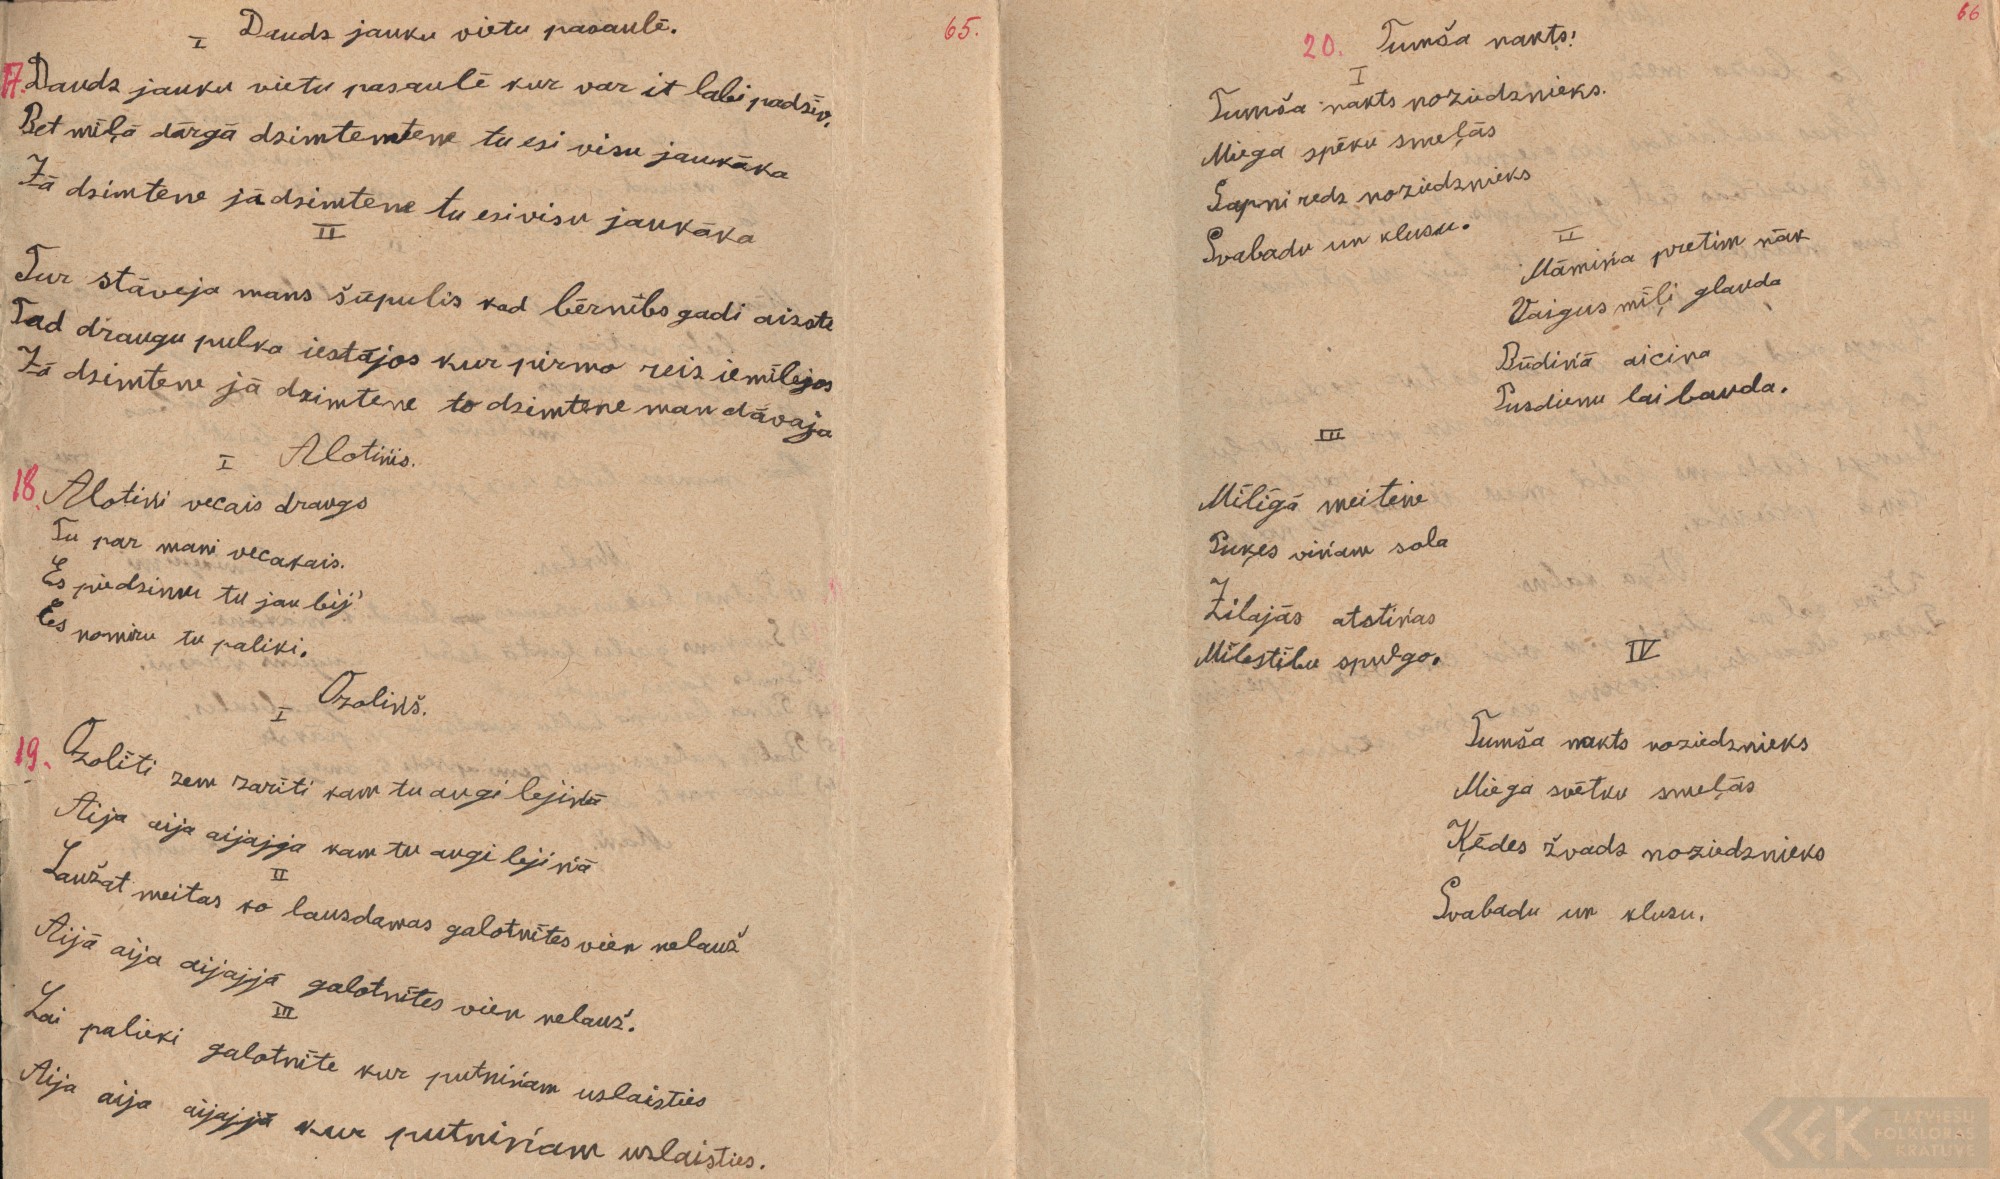 65.
Daudz jauku vietu pasaulē.
I
17. Daudz jauku vietu pasaulē kur var it labi padzīv.
Bet mīļā dārgā dzimtemtene tu esi visu jaukāka
Jā dzimtene jā dzimtene tu esi visu jaukāka
II
Tur stāveja mans šūpulis kad bērnības gadi aizste
Tad draugu pulka iestājos kur pirmo reiz iemīlejos
Jā dzimtene jā dzimtene to dzimtene man dāvaja
I Alotiņis.
18. Alotiņi vecais draugs
Tu par mani vecakais.
Es piedzimu tu jau bij'
Es nomiru tu paliki.
Ozoliņš.
I
19. Ozolīti zem zarīti kam tu augi lejiņā
Aija aija aijajja kam tu augi lejiņā
II
Laužat meitas ko lauzdamas galotnītes vien nelauž
Aijā aija aijajjā galotnītes vien nelauž.
III
Lai palieki galotnīte kur putniņam uslaisties
Aija aija aijajjā kur putniņam uzlaisties.
66
20. Tumša nakts!
I
Tumša nakts noziedznieks.
Miega spēku smeļās
Sapni redz noziedznieks
Svabadu un klusu.
II
Māmiņa pretim nāk
Vaigus mīļi glauda
Būdiņā aicina
Pusdienu lai bauda.
III
Mīlīgā meitene
Puķes viņam sola
Zilajās atstiņas
Milestību spulgo.
IV
Tumša nakts noziedznieks
Miega svētku smeļās
Ķēdes žvadz noziedznieks
Svabadu un klusu.
LATVIEŠU
FOLKLORAS
KRĀTUVE